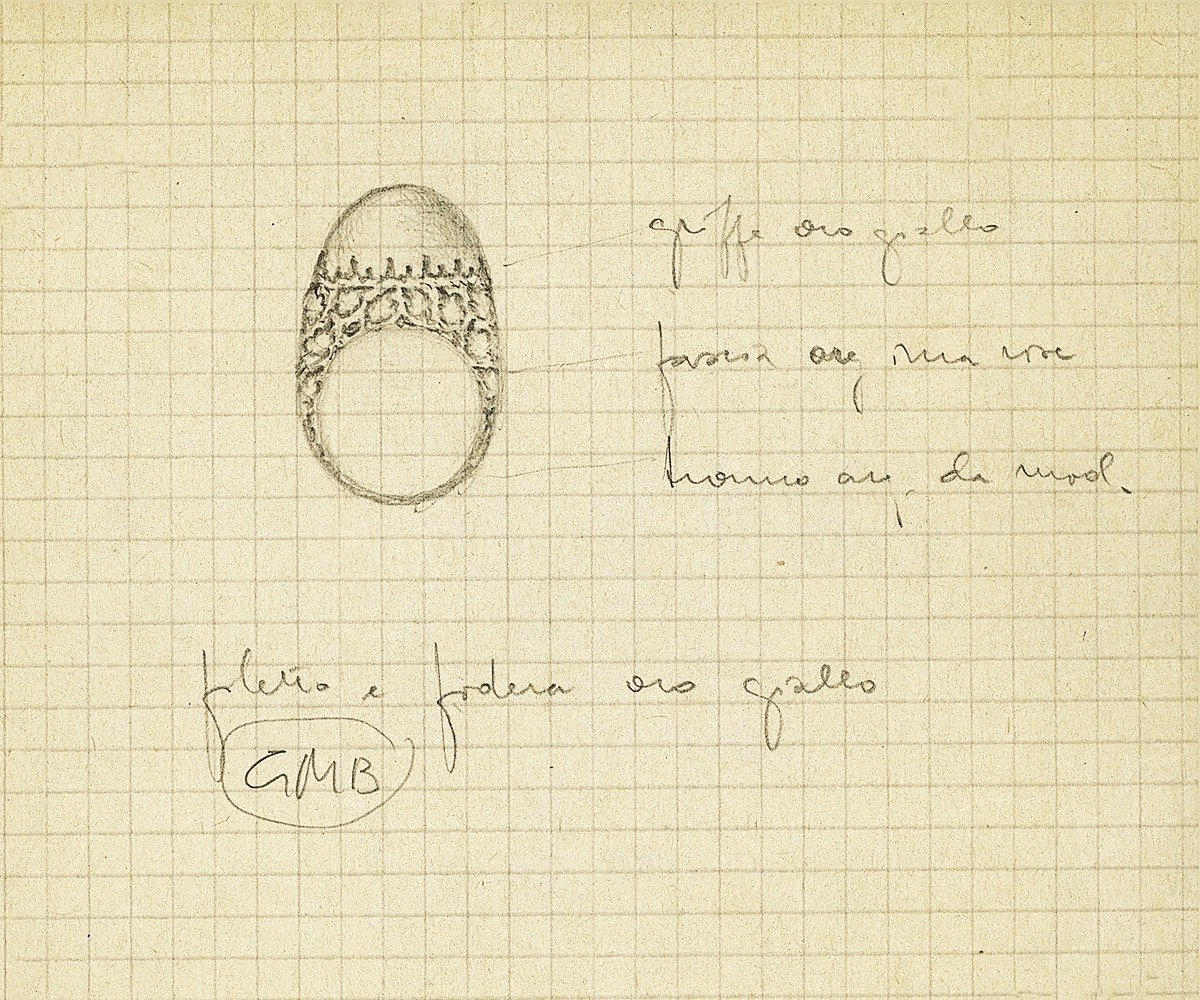 griffe oro giallo
fascia arg. rose
arg. da mod.
filetto e fodera oro giallo
GMB